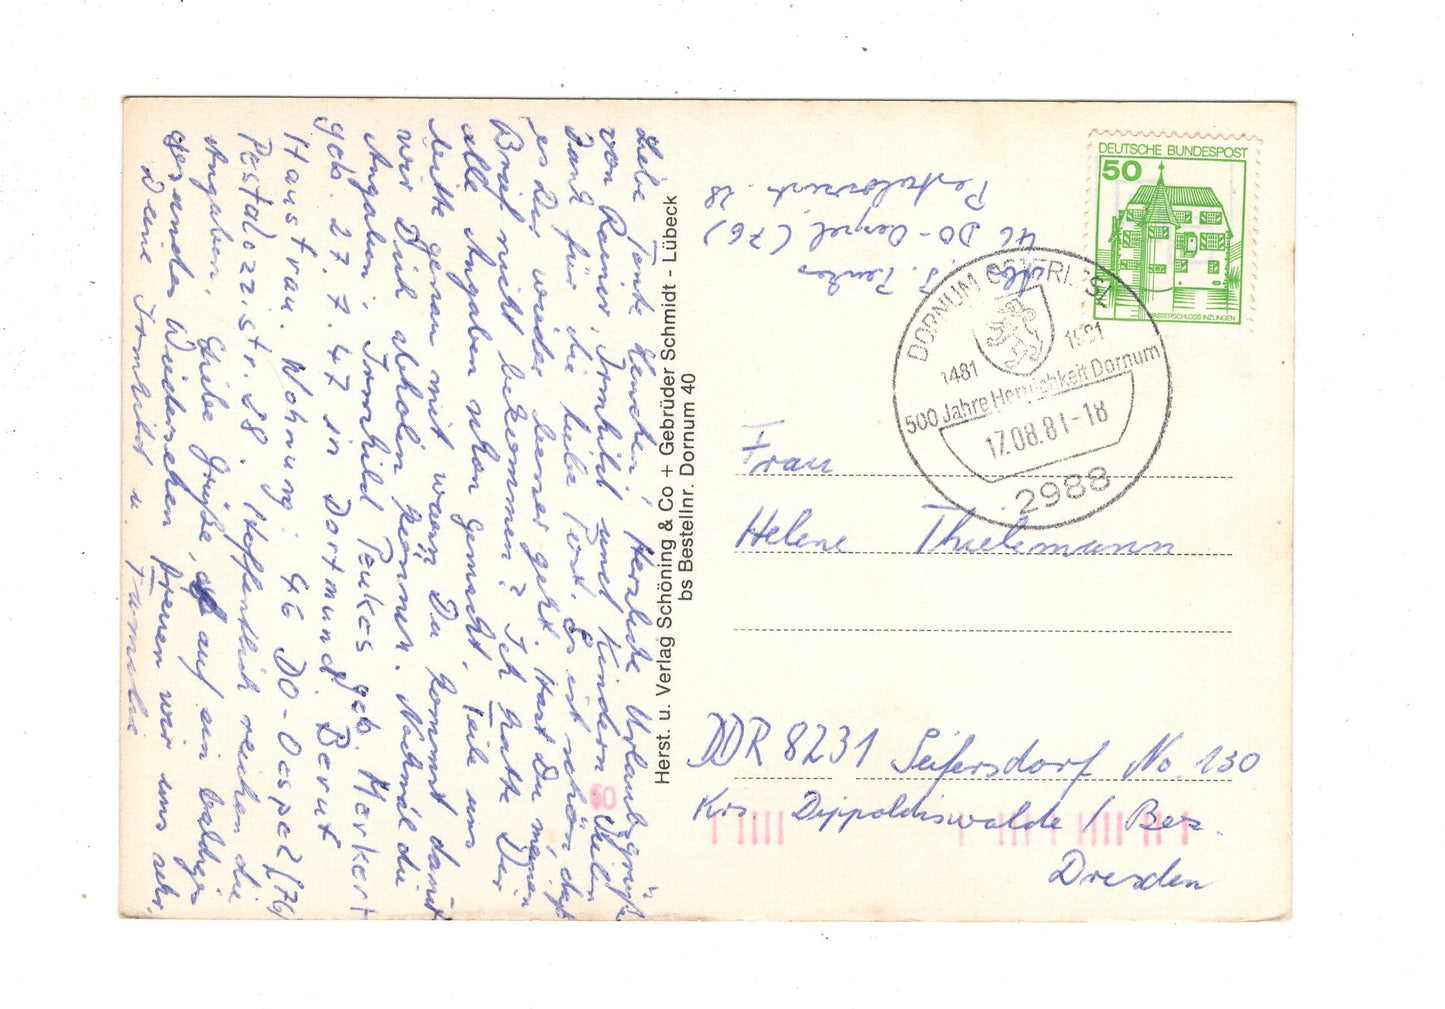 Liebe Tante Lenchen! Herzliche Urlaubsgrüße
von Rainer, Irmhild und Kindern. Vielen
Dank für die liebe Post. Es ist schön daß
es Dir wieder besser geht. Hast Du meinen
Brief nicht bekommen? Ich hatte Dir
alle Angaben schon gemacht. Teile uns
bitte genau mit wann Du kommst damit
wir Dich abholen können. Nochmal die
Angaben. Irmhild Peukes geb. Merkert
geb. 27.7.47 in Dortmund. Beruf
Hausfrau. Wohnung: 46 DO-Oespel (76)
Pestalozzistr. 28. Hoffentlich reichen die
Angaben. Liebe Grüße, auf ein baldiges
gesundes Wiedersehen freuen wir uns sehr.
Deine Irmhild u. Familie
Herst. u. Verlag Schöning & Co + Gebrüder Schmidt - Lübeck
bs Bestellnr. Dornum 40
Abs.
46 DO-Oespel (76)
Pestalozzistr. 28
DEUTSCHE BUNDESPOST
50
WASSERSCHLOSS INZLINGEN
DORNUM OSTFRIESL
1481 1981
500 Jahre Herrlichkeit Dornum
17.08.81-18
2988
Frau
Helene Thielemann
DDR 8231 Seifersdorf No. 130
Krs. Dippoldiswalde / Bez.
Dresden
60